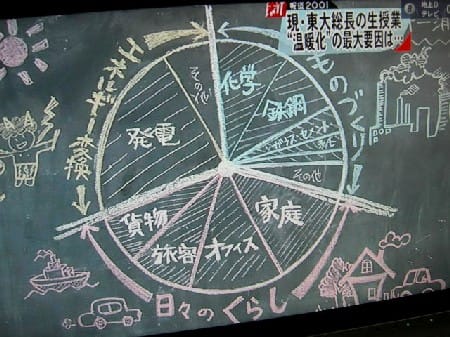 報道2001
現・東大総長の生授業
"温暖化"の最大要因は…
地上D
テレビ
エネルギー変換
その他
発電
ものづくり
化学
鉄鋼
ガラス・セメント
その他
日々のくらし
貨物
旅客
オフィス
家庭